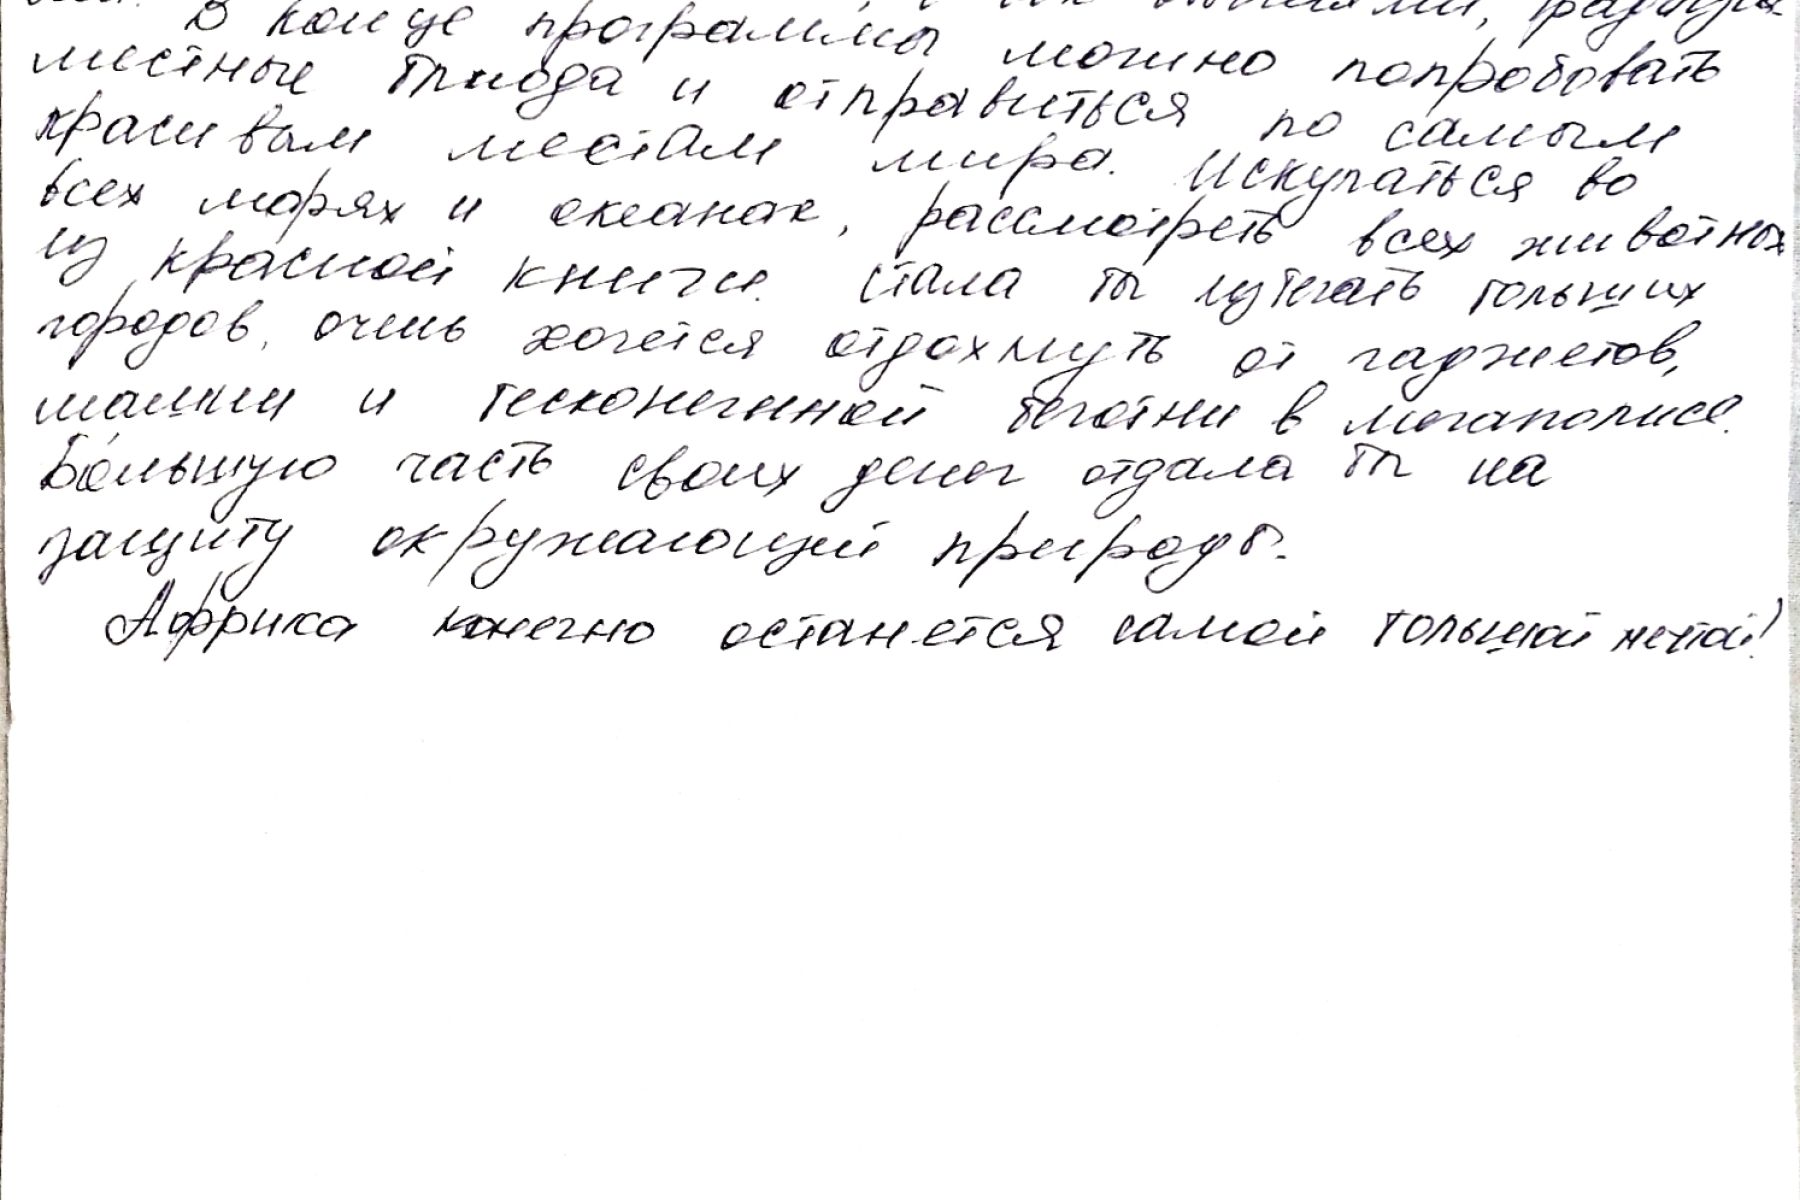 В конце программы можно попробовать
местные блюда и отправиться по самым
красивым местам мира. Искупаться во
всех морях и океанах, рассмотреть всех животных
из красной книги. Стала бы избегать больших
городов, очень хочется отдохнуть от гаджетов,
машин и бесконечной беготни в мегаполисе.
Бо́льшую часть своих денег отдала бы на
защиту окружающей природы.
Африка конечно останется самой большой мечтой!